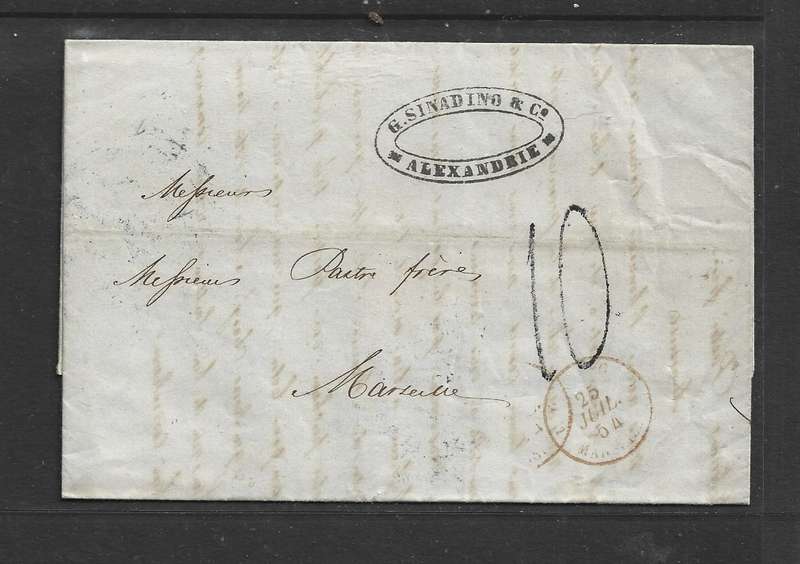 G. SINADINO & Cº
ALEXANDRIE
Messieurs
Messieurs Pastré frères
Marseille
10
25
JUIL.
54